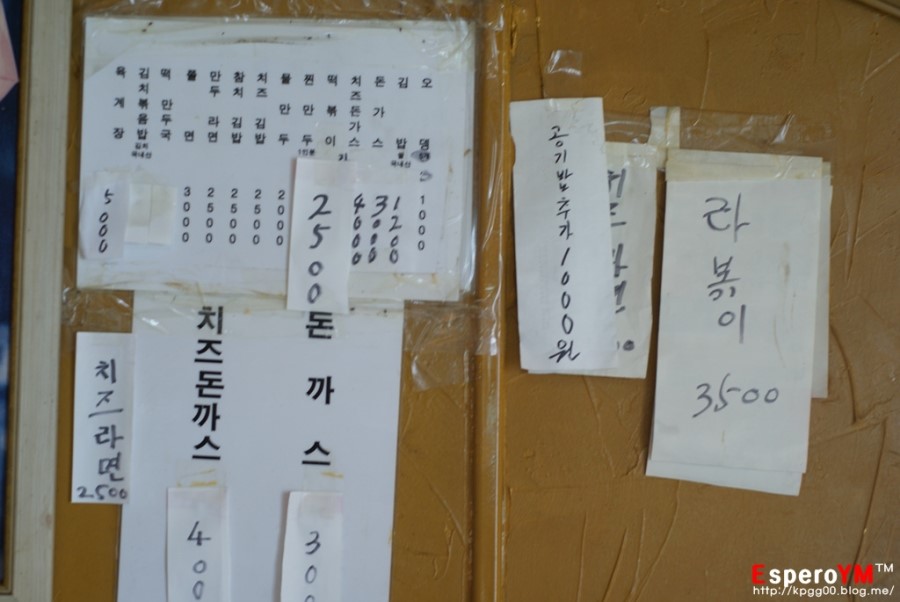 오뎅 1000
김밥 쌀 국내산 1200
돈가스 3000
치즈돈가스 4000
떡볶이
찐만두 1인분 2500
물만두
치즈김밥 2500
참치김밥 2500
만두라면 2500
쫄면 3000
떡만두국
김치볶음밥 김치 국내산
육게장 5000
돈까스
치즈돈까스
치즈라면
2500
공기밥추가1000원
라볶이
3500
EsperoYM™
http://kpgg00.blog.me/